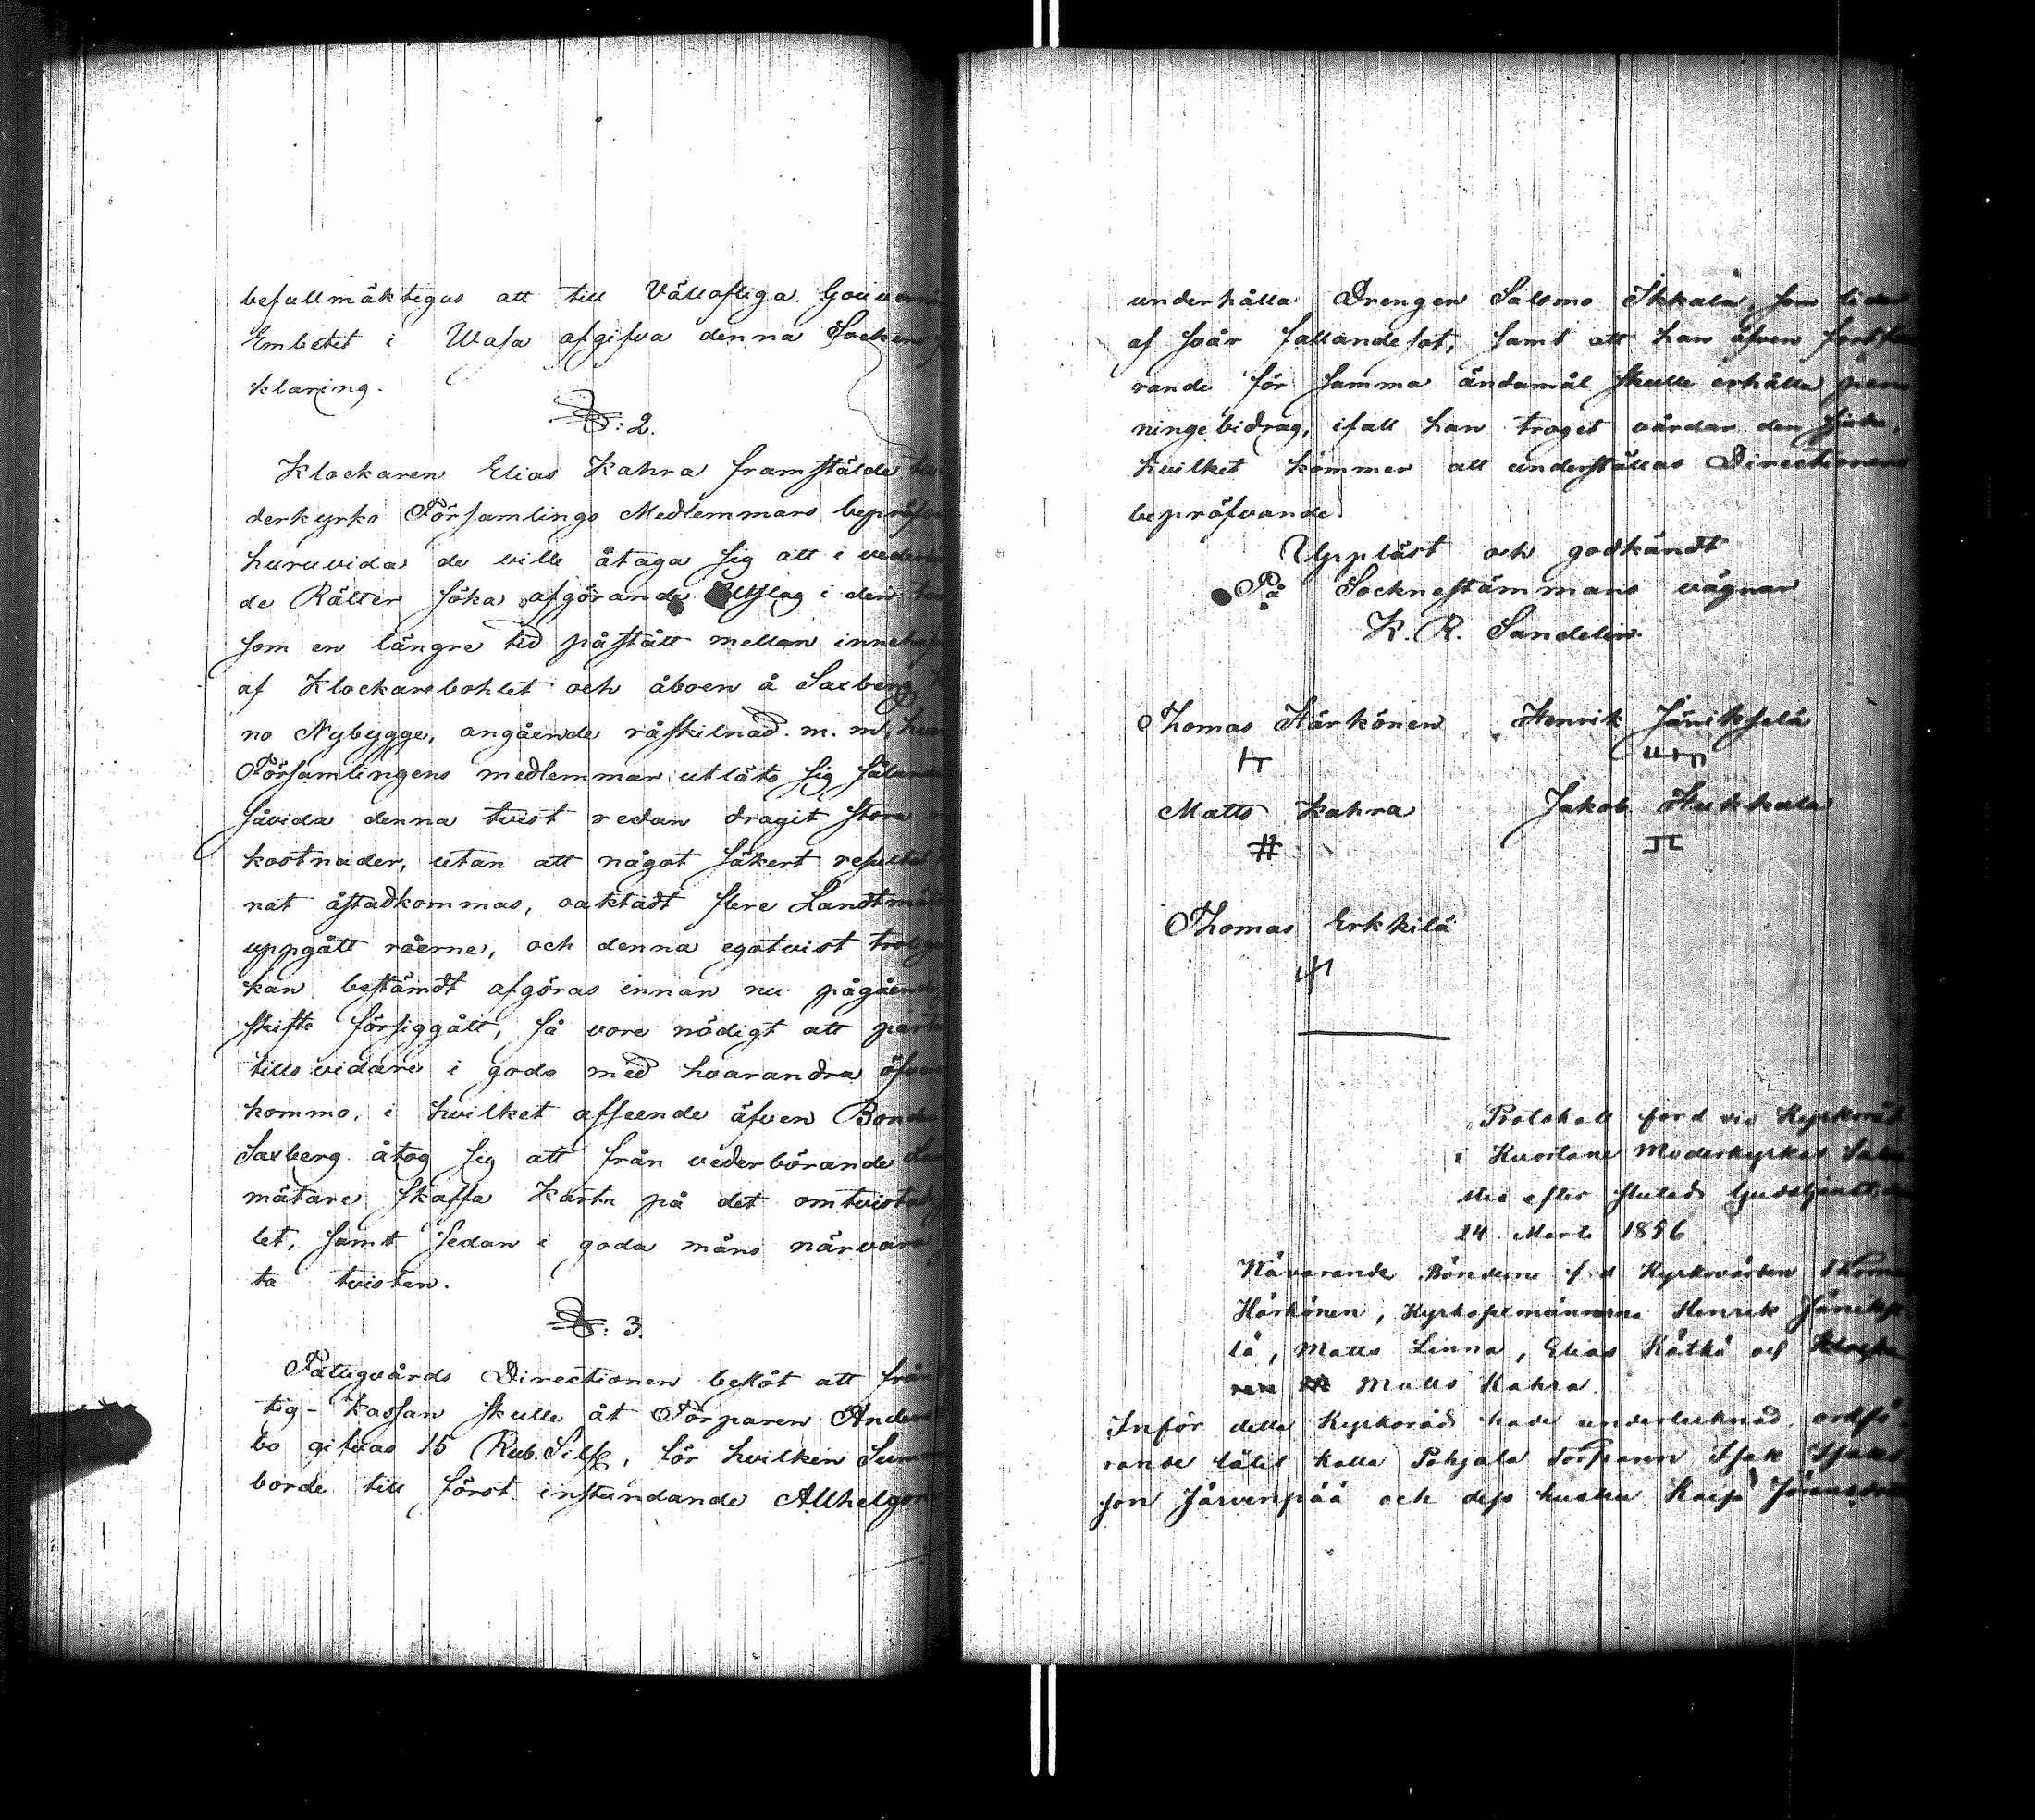 befullmäktigas att till Vällofliga Gouvern
Embetet i Wasa afgifva denna Sockens
klaring.
§: 2.
Klockaren Elias Kahra framstälde
derkyrko Församlings Medlemmars bepröfva
huruvida de ville åtaga sig att i vederbö
de Rätter söka afgörande Utslag i den
som en längre tid påstått mellan inneha
af Klockarebohlet och åboen å Saxberg
no Nybygge, angående råskilnad. m. m,
Församlingens medlemmar utläto sig sålun
såvida denna tvist redan dragit stora
kostnader, utan att något säkert resultat
nat åstadkommas, oaktadt flere Landtmät
uppgått råerne, och denna egotvist trolig
kan bestämdt afgöras innan nu pågående
skifte försiggått, så vore nödigt att part
tillsvidare i godo med hvarandra öfver
kommo, i hvilket afseende äfven Bonden
Saxberg åtog sig att från vederbörande
mätare skaffa Karta på det omtvistade
let, samt sedan i goda mäns närvaro
ta tvisten.
§: 3.
Fattigvårds Directionen beslöt att från
tig-kassan skulle åt Torparen Anders
bo gifvas 15 Rub. Silf, för hvilken Summa
borde till först instundande Allhelgon
underhålla Drengen Salomo Ikkala, som lider
af svår fallandesot, samt att han äfven fortfa
rande för samma ändamål skulle erhålla pen
ningebidrag, ifall han troget vårdar den sjuke,
hvilket kommer att understållas Directionens
bepröfvande.
Uppläst och godkändt
På Socknestämmans vägnar
K. R. Sandelin.
Thomas Härkönen Henrik Jänikselä
Matts Kahra Jakob Hukkala
Thomas Erkkilä
Protokoll förd vid Kyrkoråd
i Kuortane Moderkyrkas Sakri
stia efter slutad Gudstjenst, den
24 Marts 1856
Närvarande Bönderne f d Kyrkovärden Thomas
Härkönen, Kyrkosexmännerna Henrik Jänikse
lä, Matts Linna, Elias Kätkä och Klocka
ren Matts Kahra.
Inför detta Kyrkoråd hade undertecknad ordfö
rande låtit kalla Pohjala Torparen Isak Isaks
son Järvenpää och dess hustru Kaisa